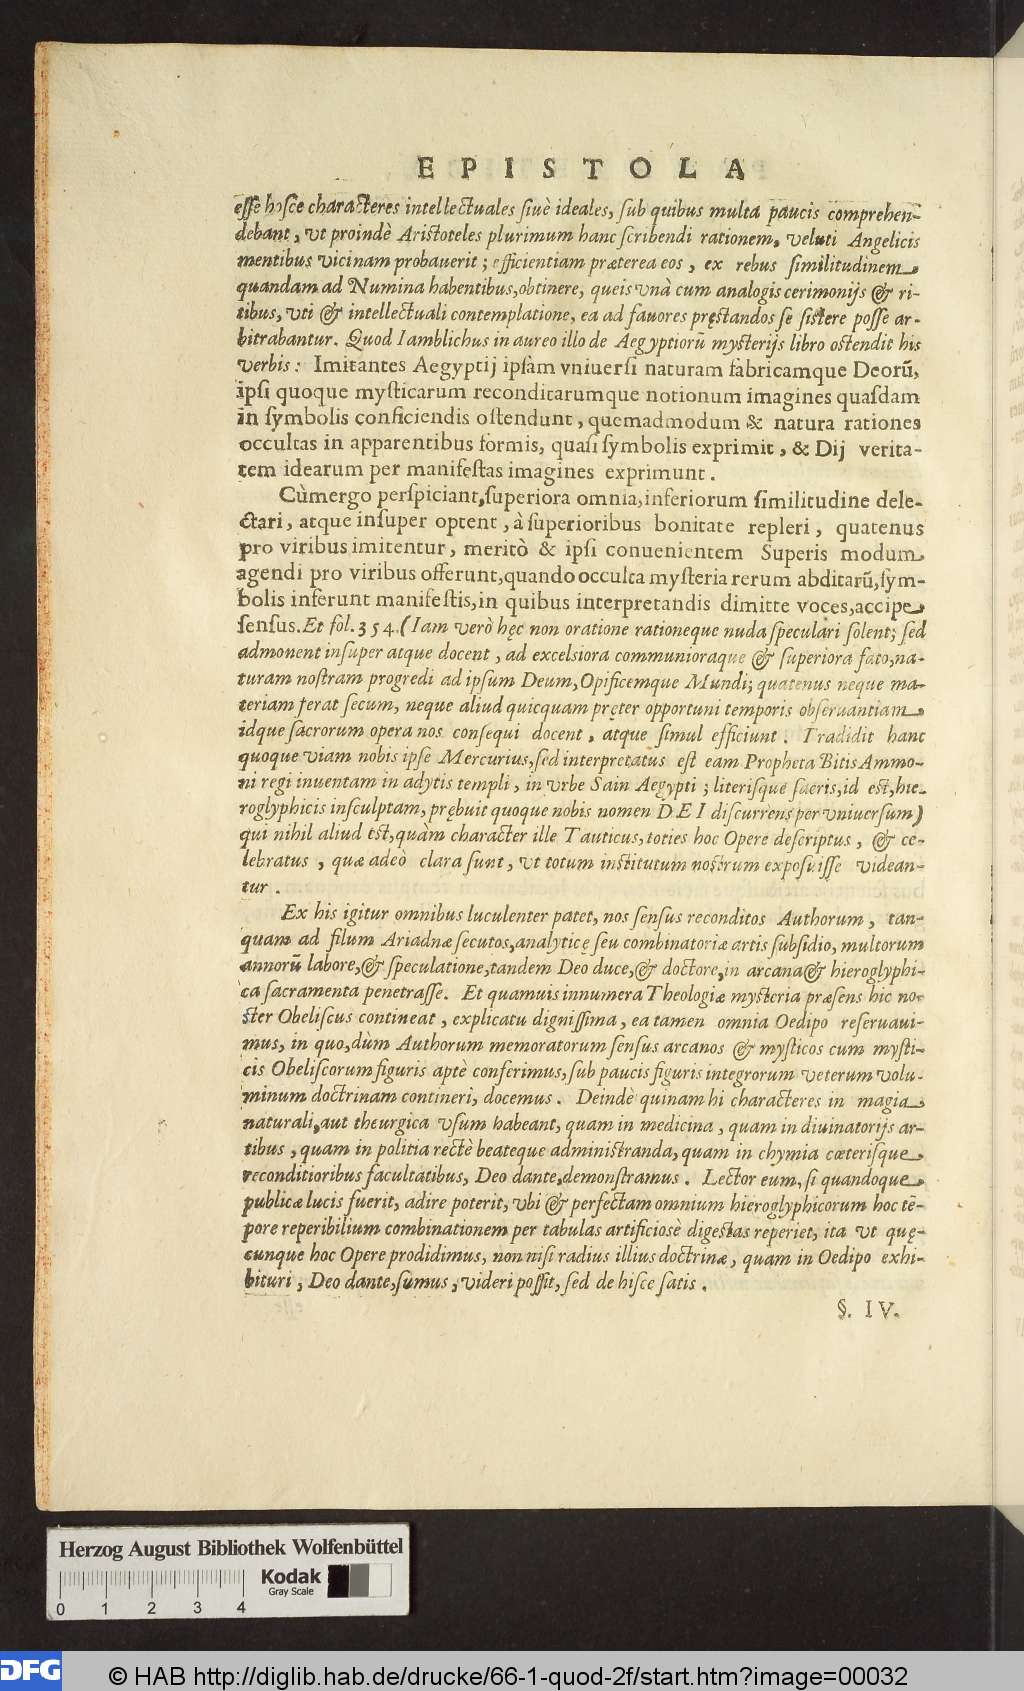 EPISTOLA
esse hosce characteres intellectuales siuè ideales, sub quibus multa paucis comprehen-
debant, vt proindè Aristoteles plurimum hanc scribendi rationem, veluti Angelicis
mentibus vicinam probauerit; efficientiam præterea eos, ex rebus similitudinem
quandam ad Numina habentibus, obtinere, queis vnà cum analogis cerimonijs & ri-
tibus, vti & intellectuali contemplatione, ea ad fauores pręstandos se sistere posse ar-
bitrabantur. Quod Iamblichus in aureo illo de Aegyptiorũ mysterijs libro ostendit his
verbis: Imitantes Aegyptij ipsam vniuersi naturam fabricamque Deorũ,
ipsi quoque mysticarum reconditarumque notionum imagines quasdam
in symbolis conficiendis ostendunt, quemadmodum & natura rationes
occultas in apparentibus formis, quasi symbolis exprimit, & Dij verita-
tem idearum per manifestas imagines exprimunt.
Cùmergo perspiciant, superiora omnia, inferiorum similitudine dele-
ctari, atque insuper optent, à superioribus bonitate repleri, quatenus
pro viribus imitentur, meritò & ipsi conuenientem Superis modum
agendi pro viribus offerunt, quando occulta mysteria rerum abditarũ, sym-
bolis inferunt manifestis, in quibus interpretandis dimitte voces, accipe
sensus. Et fol. 354. (Iam verò hęc non oratione rationeque nuda speculari solent; sed
admonent insuper atque docent, ad excelsiora communioraque & superiora fato, na-
turam nostram progredi ad ipsum Deum, Opificemque Mundi; quatenus neque ma-
teriam ferat secum, neque aliud quicquam pręter opportuni temporis obseruantiam
idque sacrorum opera nos consequi docent, atque simul efficiunt. Tradidit hanc
quoque viam nobis ipse Mercurius, sed interpretatus est eam Propheta Bitis Ammo-
ni regi inuentam in adytis templi, in vrbe Sain Aegypti; literisque sacris, id est, hie-
roglyphicis insculptam, prębuit quoque nobis nomen DEI discurrens per vniuersum)
qui nihil aliud est, quàm character ille Tauticus, toties hoc Opere descriptus, & ce-
lebratus, quæ adeò clara sunt, vt totum institutum nostrum exposuisse videan-
tur.
Ex his igitur omnibus luculenter patet, nos sensus reconditos Authorum, tan-
quam ad filum Ariadnæ secutos, analyticę seu combinatoriæ artis subsidio, multorum
annorũ labore, & speculatione, tandem Deo duce, & doctore, in arcana & hieroglyphi-
ca sacramenta penetrasse. Et quamuis innumera Theologiæ mysteria præsens hic no-
ster Obeliscus contineat, explicatu dignissima, ea tamen omnia Oedipo reseruaui-
mus, in quo, dùm Authorum memoratorum sensus arcanos & mysticos cum mysti-
cis Obeliscorum figuris aptè conferimus, sub paucis figuris integrorum veterum volu-
minum doctrinam contineri, docemus. Deindè quinam hi characteres in magia
naturali, aut theurgica vsum habeant, quam in medicina, quam in diuinatorijs ar-
tibus, quam in politia rectè beateque administranda, quam in chymia cæterisque
reconditioribus facultatibus, Deo dante, demonstramus. Lector eum, si quandoque
publicæ lucis fuerit, adire poterit, vbi & perfectam omnium hieroglyphicorum hoc tẽ-
pore reperibilium combinationem per tabulas artificiosè digestas reperiet, ita vt quę-
cunque hoc Opere prodidimus, non nisi radius illius doctrinæ, quam in Oedipo exhi-
bituri, Deo dante, sumus, videri possit, sed de hisce satis.
§. IV.
Herzog August Bibliothek Wolfenbüttel
Kodak
Gray Scale
0 1 2 3 4
DFG
© HAB http://diglib.hab.de/drucke/66-1-quod-2f/start.htm?image=00032